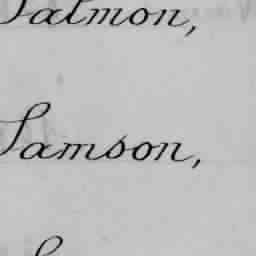 Salmon,
Samson,